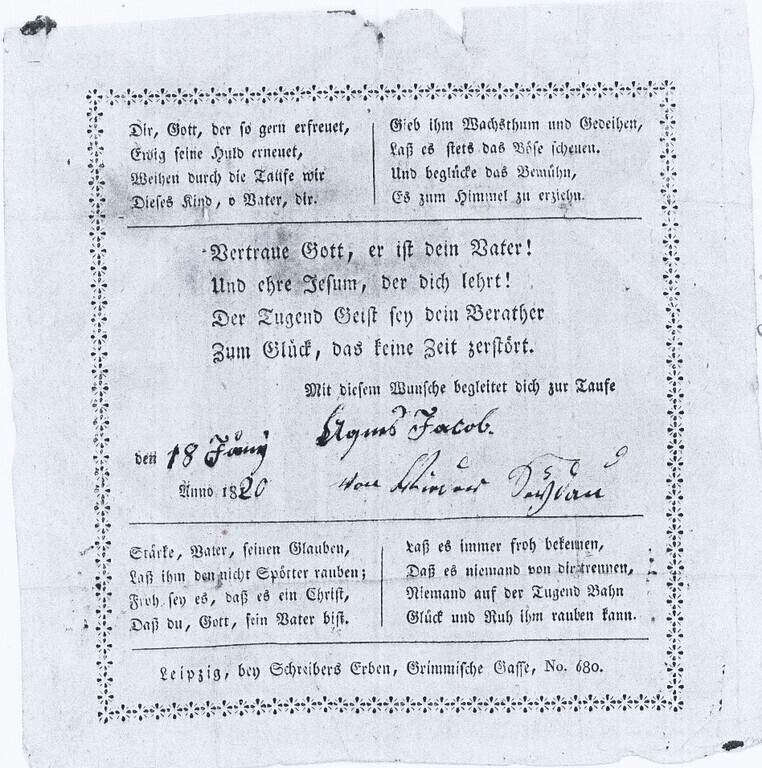 Dir, Gott, der so gern erfreuet,
Ewig seine Huld erneuet,
Weihen durch die Taufe wir
Dieses Kind, o Vater, dir.
Gieb ihm Wachsthum und Gedeihen,
Laß es stets das Böse scheuen.
Und beglücke das Bemühn,
Es zum Himmel zu erziehn.
Vertraue Gott, er ist dein Vater!
Und ehre Jesum, der dich lehrt!
Der Tugend Geist sey dein Berather
Zum Glück, das keine Zeit zerstört.
Mit diesem Wunsche begleitet dich zur Taufe
Agnes Jacob.
den 18 Juny
Anno 1820
von
Stärke, Vater, seinen Glauben,
Laß ihm den nicht Spötter rauben;
Froh sey es, daß es ein Christ,
Daß du, Gott, sein Vater bist.
Laß es immer froh bekennen,
Daß es niemand von dir trennen,
Niemand auf der Tugend Bahn
Glück und Ruh ihm rauben kann.
Leipzig, bey Schreibers Erben, Grimmische Gasse, No. 680.